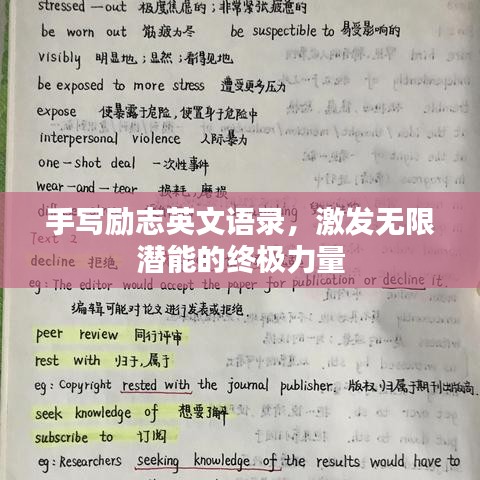 stressed-out 极度焦虑的；非常紧张疲惫的
be worn out 筋疲力尽 be suspectible to 易受影响的
visibly 明显地；显然；看得见地
be exposed to more stress 遭受更多压力
expose 使暴露于危险，使置身于危险中
interpersonal violence 人际暴力
one-shot deal 一次性事件
wear-and-tear 损耗，磨损
手写励志英文语录，激发无限
潜能的终极力量
Text 2
decline 拒绝
eg: The editor would accept the paper for publication or decline it.
编辑可能对论文进行发表或拒绝.
peer review 同行评审
rest with 归于,属于
eg: Copyright rested with the journal publisher. 版权归属于期刊出版商.
seek knowledge of 想要了解
subscribe to 订阅
eg: Researchers seeking knowledge of the results would have to